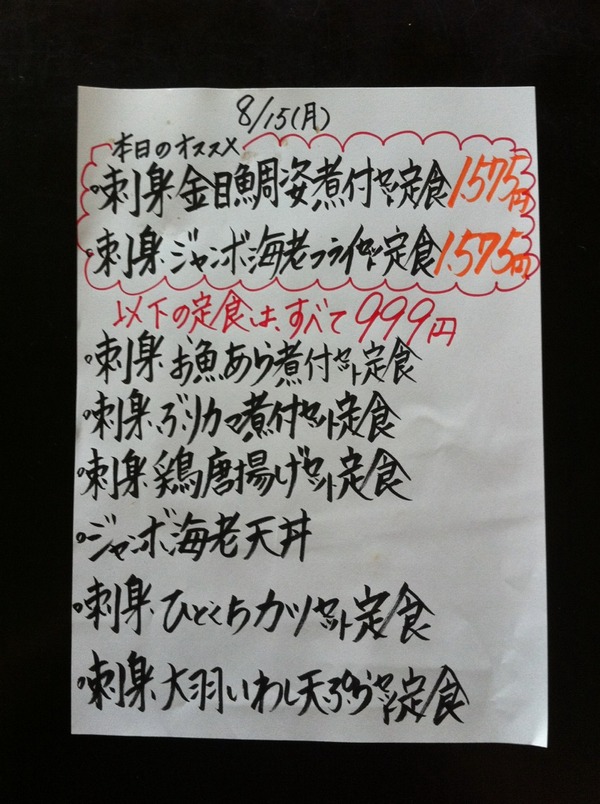 8/15(月)
本日のオススメ
・刺身、金目鯛姿煮付セット定食1,575円
・刺身、ジャンボ海老フライセット定食1,575円
以下の定食は、すべて999円
・刺身、お魚あら煮付セット定食
・刺身、ぶりカマ煮付セット定食
・刺身、鶏唐揚げセット定食
・ジャンボ海老天丼
・刺身、ひとくちカツセット定食
・刺身、大羽いわし天ぷらセット定食